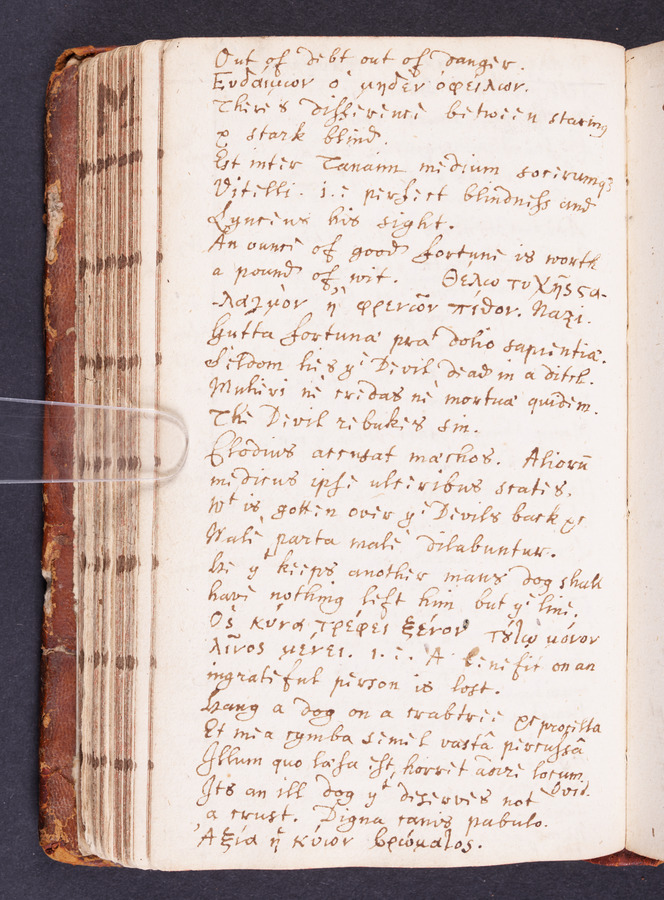 Out of debt out of danger.
Ευδάιμων ὁ μηδὲν ὀφείλων.
There's difference between staring
& stark blind.
Est inter Tanaim medium socerumq;
Vitelli. i.e perfect blindness and
Lynceus his sight.
An ounce of good fortune is worth
a pound of wit. Θέλω τυχῆς στα-
-λαγμὸν ἢ φρενῶν πίθον. Nazi.
Gutta fortunæ præ dolio sapientiæ.
Seldom lies ye Devil dead in a ditch.
Mulieri ne credas ne mortuæ quidem.
The Devil rebukes sin.
Clodius accusat mæchos. Aliorū
medicus ipse ulceribus scates.
Wt is gotten over ye Devils back &c
Malè parta malè dilabuntur.
He yt keeps another mans dog shall
have nothing left him but ye line.
Ὃς κύνα τρέφει ξένον τούτῳ μόνον
λῖνος μένει. i.e. A benefit on an
ingrateful person is lost.
Hang a dog on a crabtree &c procilla
Et mea cymba semel vastâ percussâ
Illum quo læsa est, horret adire locum.
Ovid.
Its an ill dog yt deserves not
a crust. Digna canis pabulo.
Ἀξία ἡ κύων βρώματος.